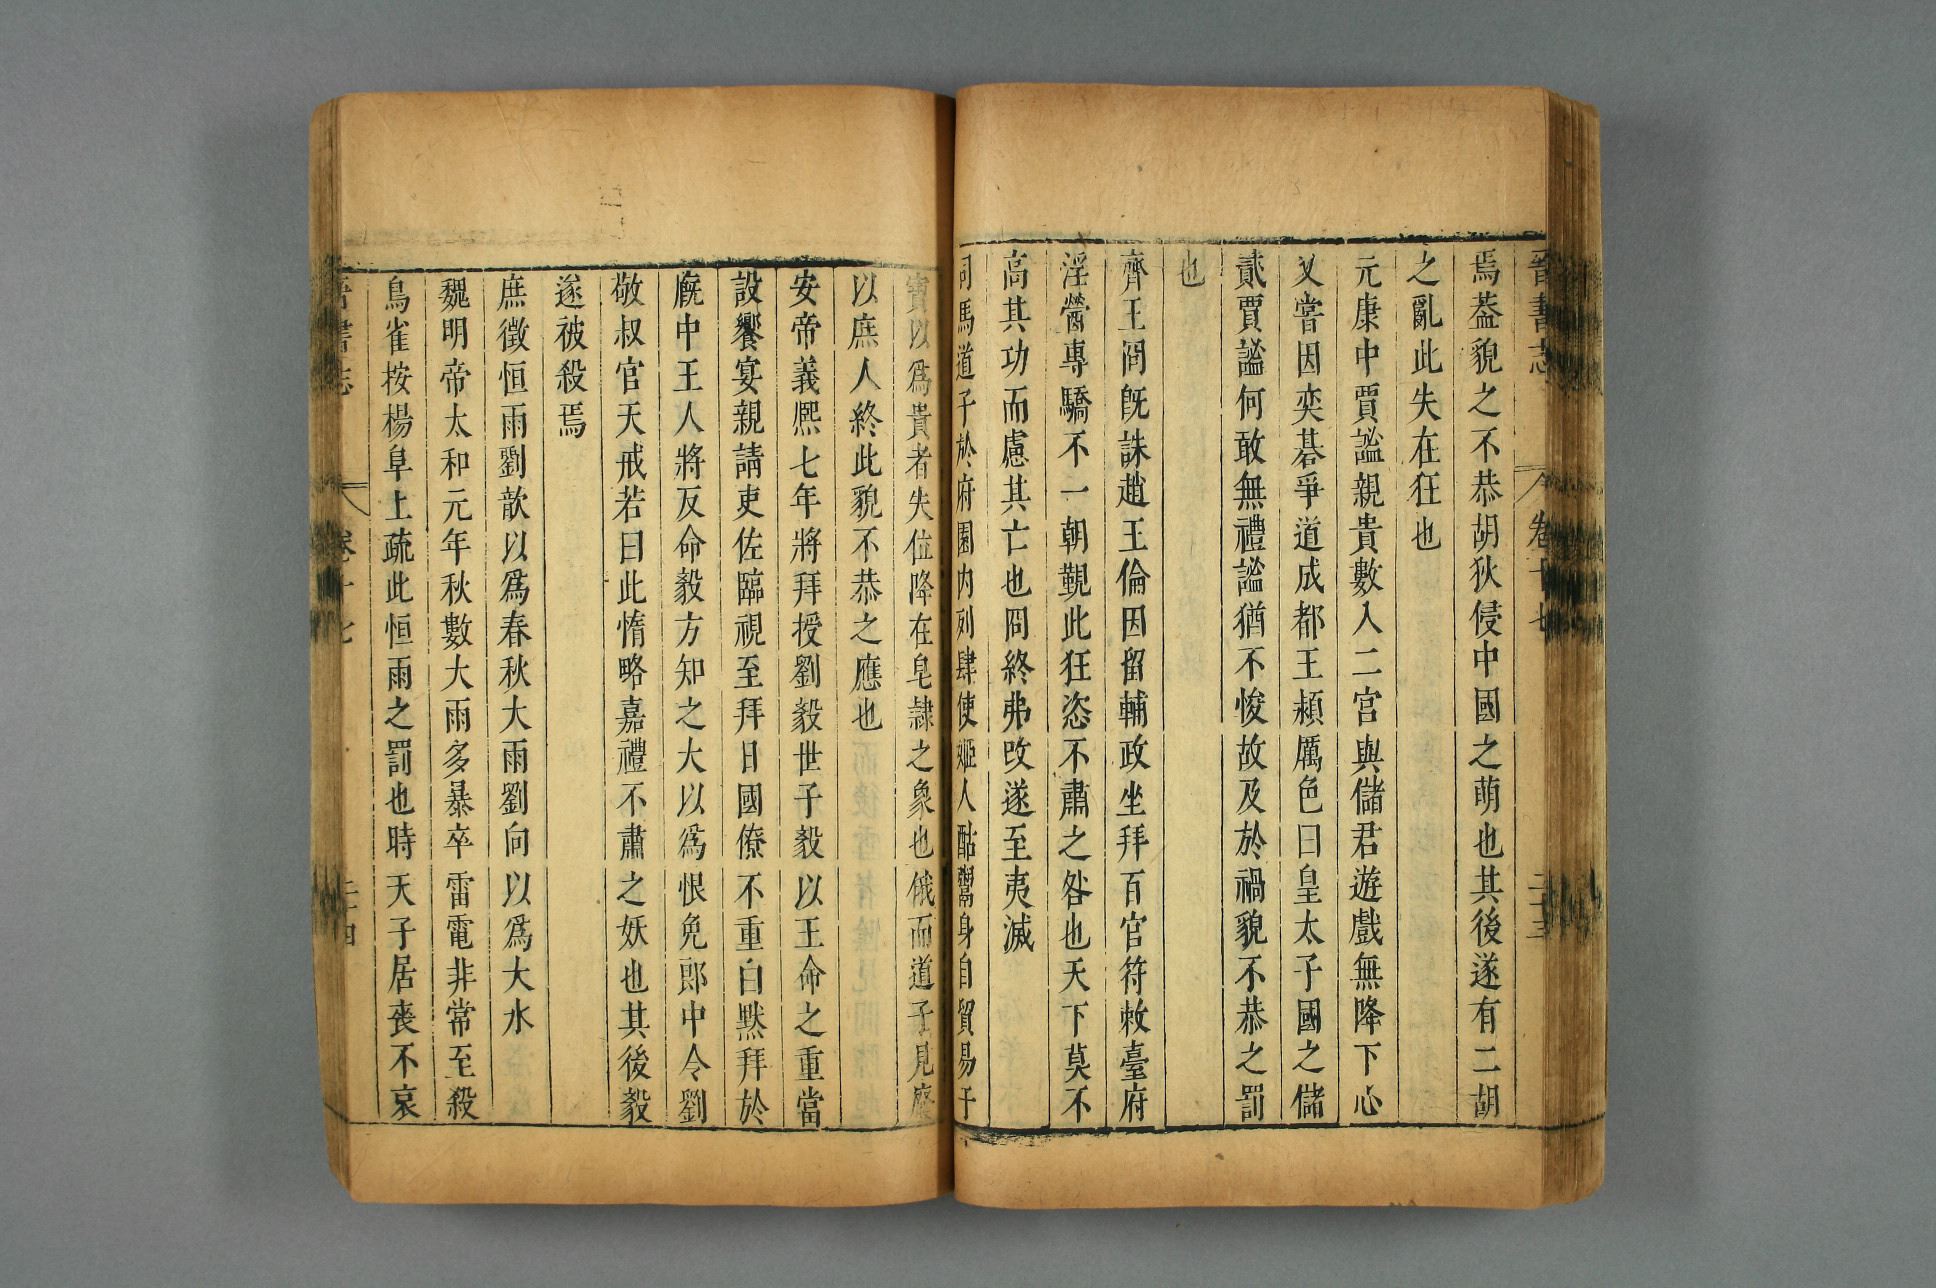 晉書志 卷十七 二十三
焉葢貌之不恭胡狄侵中國之萌也其後遂有二胡
之亂此失在狂也
元康中賈謐親貴數入二宮與儲君遊戲無降下心
又嘗因奕碁爭道成都王穎厲色曰皇太子國之儲
貳賈謐何敢無禮謐猶不悛故及於禍貌不恭之罰
也
齊王冏旣誅趙王倫因留輔政坐拜百官符敕臺府
淫醟專驕不一朝覲此狂恣不肅之咎也天下莫不
高其功而慮其亡也冏終弗改遂至夷滅
司馬道子於府園內列肆使姬人酤鬻身自貿易干
寶以爲貴者失位降在皂隷之象也俄而道子見廢
以庶人終此貌不恭之應也
安帝義熙七年將拜授劉毅世子毅以王命之重當
設饗宴親請吏佐臨視至拜日國僚不重白默拜於
廐中王人將反命毅方知之大以爲恨免郎中令劉
敬叔官天戒若曰此惰略嘉禮不肅之妖也其後毅
遂被殺焉
庶徵恒雨劉歆以爲春秋大雨劉向以爲大水
魏明帝太和元年秋數大雨多暴卒雷電非常至殺
鳥雀按楊阜上疏此恒雨之罰也時天子居喪不哀
晉書志 卷十七 二十四